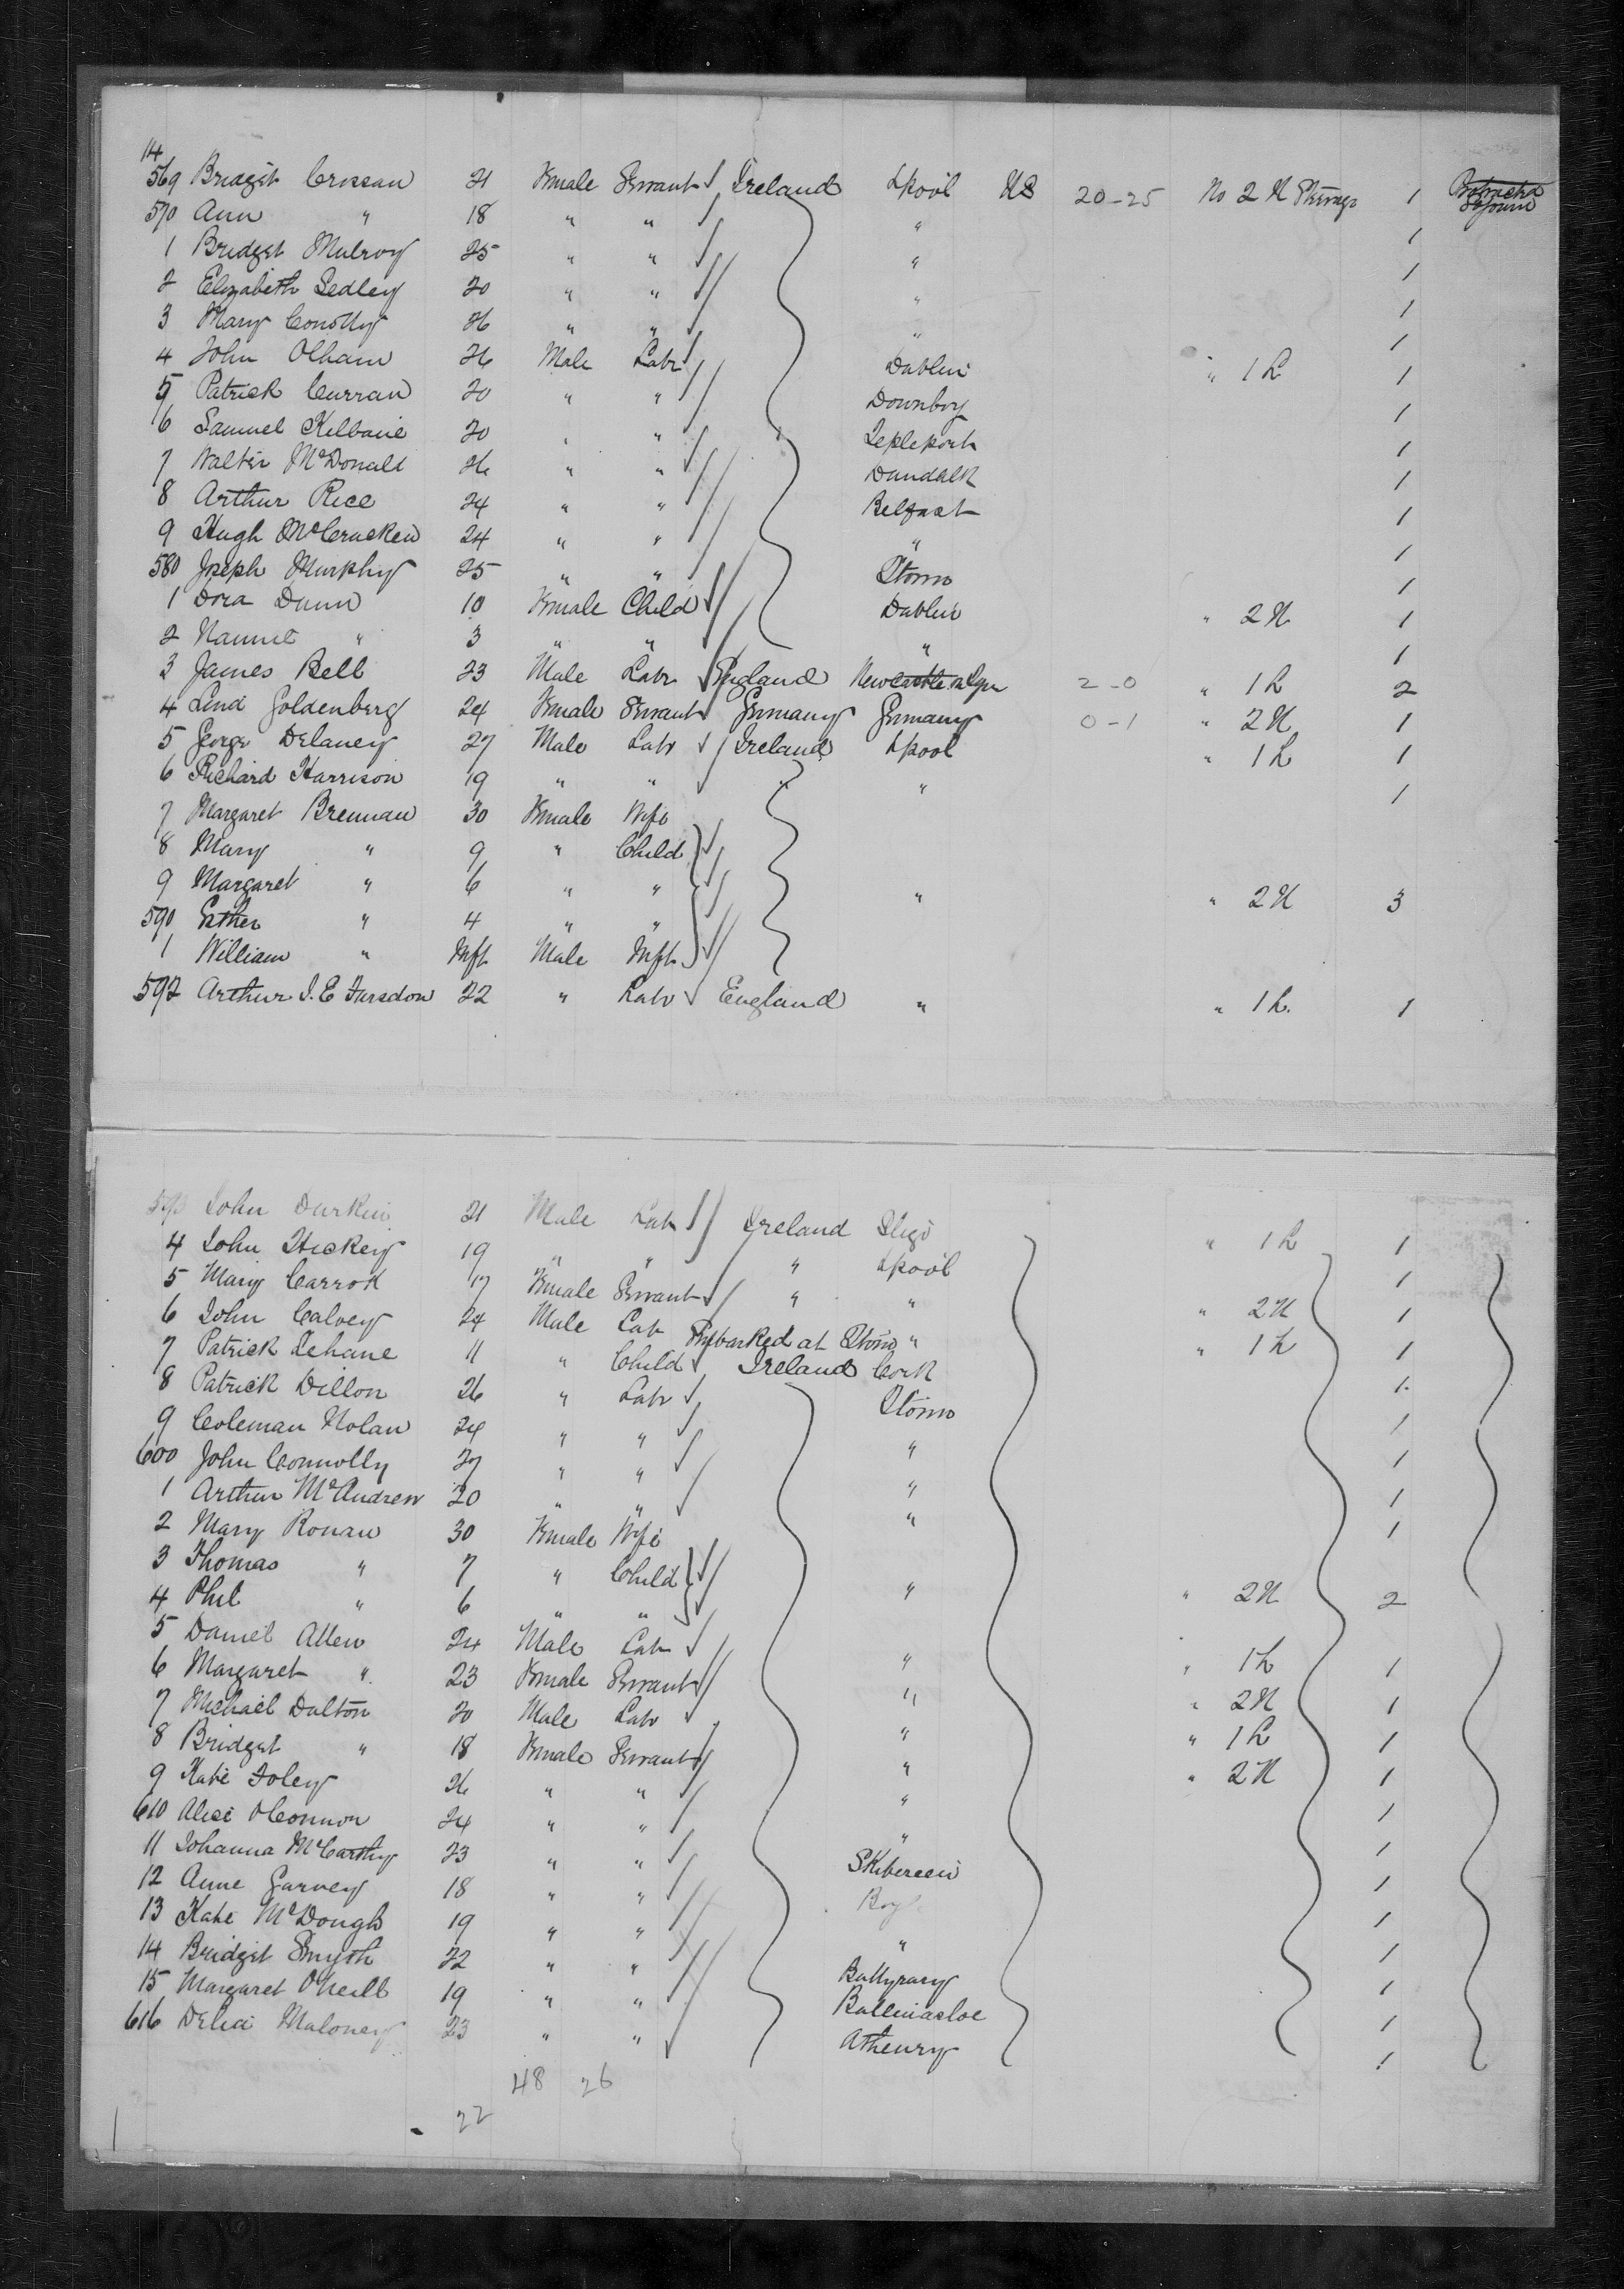 14
569 Bridget Crossan 21 Female Servant Ireland Lpool US 20-25 No 2 H Steerage 1
570 Ann " 18 " " " 1
1 Bridget Mulroy 25 " " " 1
2 Elizabeth Sedley 20 " " " 1
3 Mary Conolly 26 " " " 1
4 John Oldham 26 Male Labr Dublin " 1 h 1
5 Patrick Curran 20 " " 1
6 Samuel Kilbane 20 " " 1
7 Walter McDonald 26 " " Dundalk 1
8 Arthur Rice 24 " " Belfast 1
9 Hugh McCracken 24 " " " 1
580 Joseph Murphy 25 " " Qtown 1
1 Dora Dunn 10 Female Child Dublin " 2 H 1
2 " 3 " " " 1
3 James Bell 23 Male Labr England Newcastle 2-0 " 1 h 2
4 Lind Goldenberg 24 Female Servant Germany Germany 0-1 " 2 H 1
5 George Delaney 27 Male Labr Ireland Lpool " 1 h 1
6 Richard Harrison 19 " " " " 1
7 Margaret Brennan 30 Female Wife
8 Mary " 9 " Child
9 Margaret " 6 " " " " 2 H 3
590 Esther " 4 " "
1 William " Inft Male Inft
592 Arthur J. E Fursdon 22 " Labr England " " 1 h. 1
593 John Durkin 21 Male Labr Ireland Sligo " 1 h 1
4 John Hickey 19 " " " Lpool 1
5 Mary Carroll 17 Female Servant " " " 2 H 1
6 John Calvey 24 Male Lab Embarked at Qtown " " 1 h 1
7 Patrick Lehane 11 " Child Ireland Cork 1
8 Patrick Dillon 26 " Labr Qtown 1
9 Coleman Nolan 24 " " " 1
600 John Connolly 27 " " " 1
1 Arthur McAndrew 20 " " " 1
2 Mary Ronan 30 Female Wife
3 Thomas " 7 " Child " " 2 H 2
4 Phil " 6 " "
5 Daniel Allen 24 Male Lab " " 1 h 1
6 Margaret " 23 Female Servant " " 2 H 1
7 Michael Dalton 20 Male Labr " " 1 h 1
8 Bridget " 18 Female Servant " " 2 H 1
9 Kate Foley 26 " " " 1
610 Alice OConnor 24 " " " 1
11 Johanna McCarthy 23 " " Skibereen 1
12 Anne Garvey 18 " " Boyle 1
13 Kate McDough 19 " " " 1
14 Bridget Smyth 22 " " Ballyvary 1
15 Margaret ONeill 19 " " Ballinasloe 1
616 Delia Maloney 23 " " Athenry 1
48 26
22